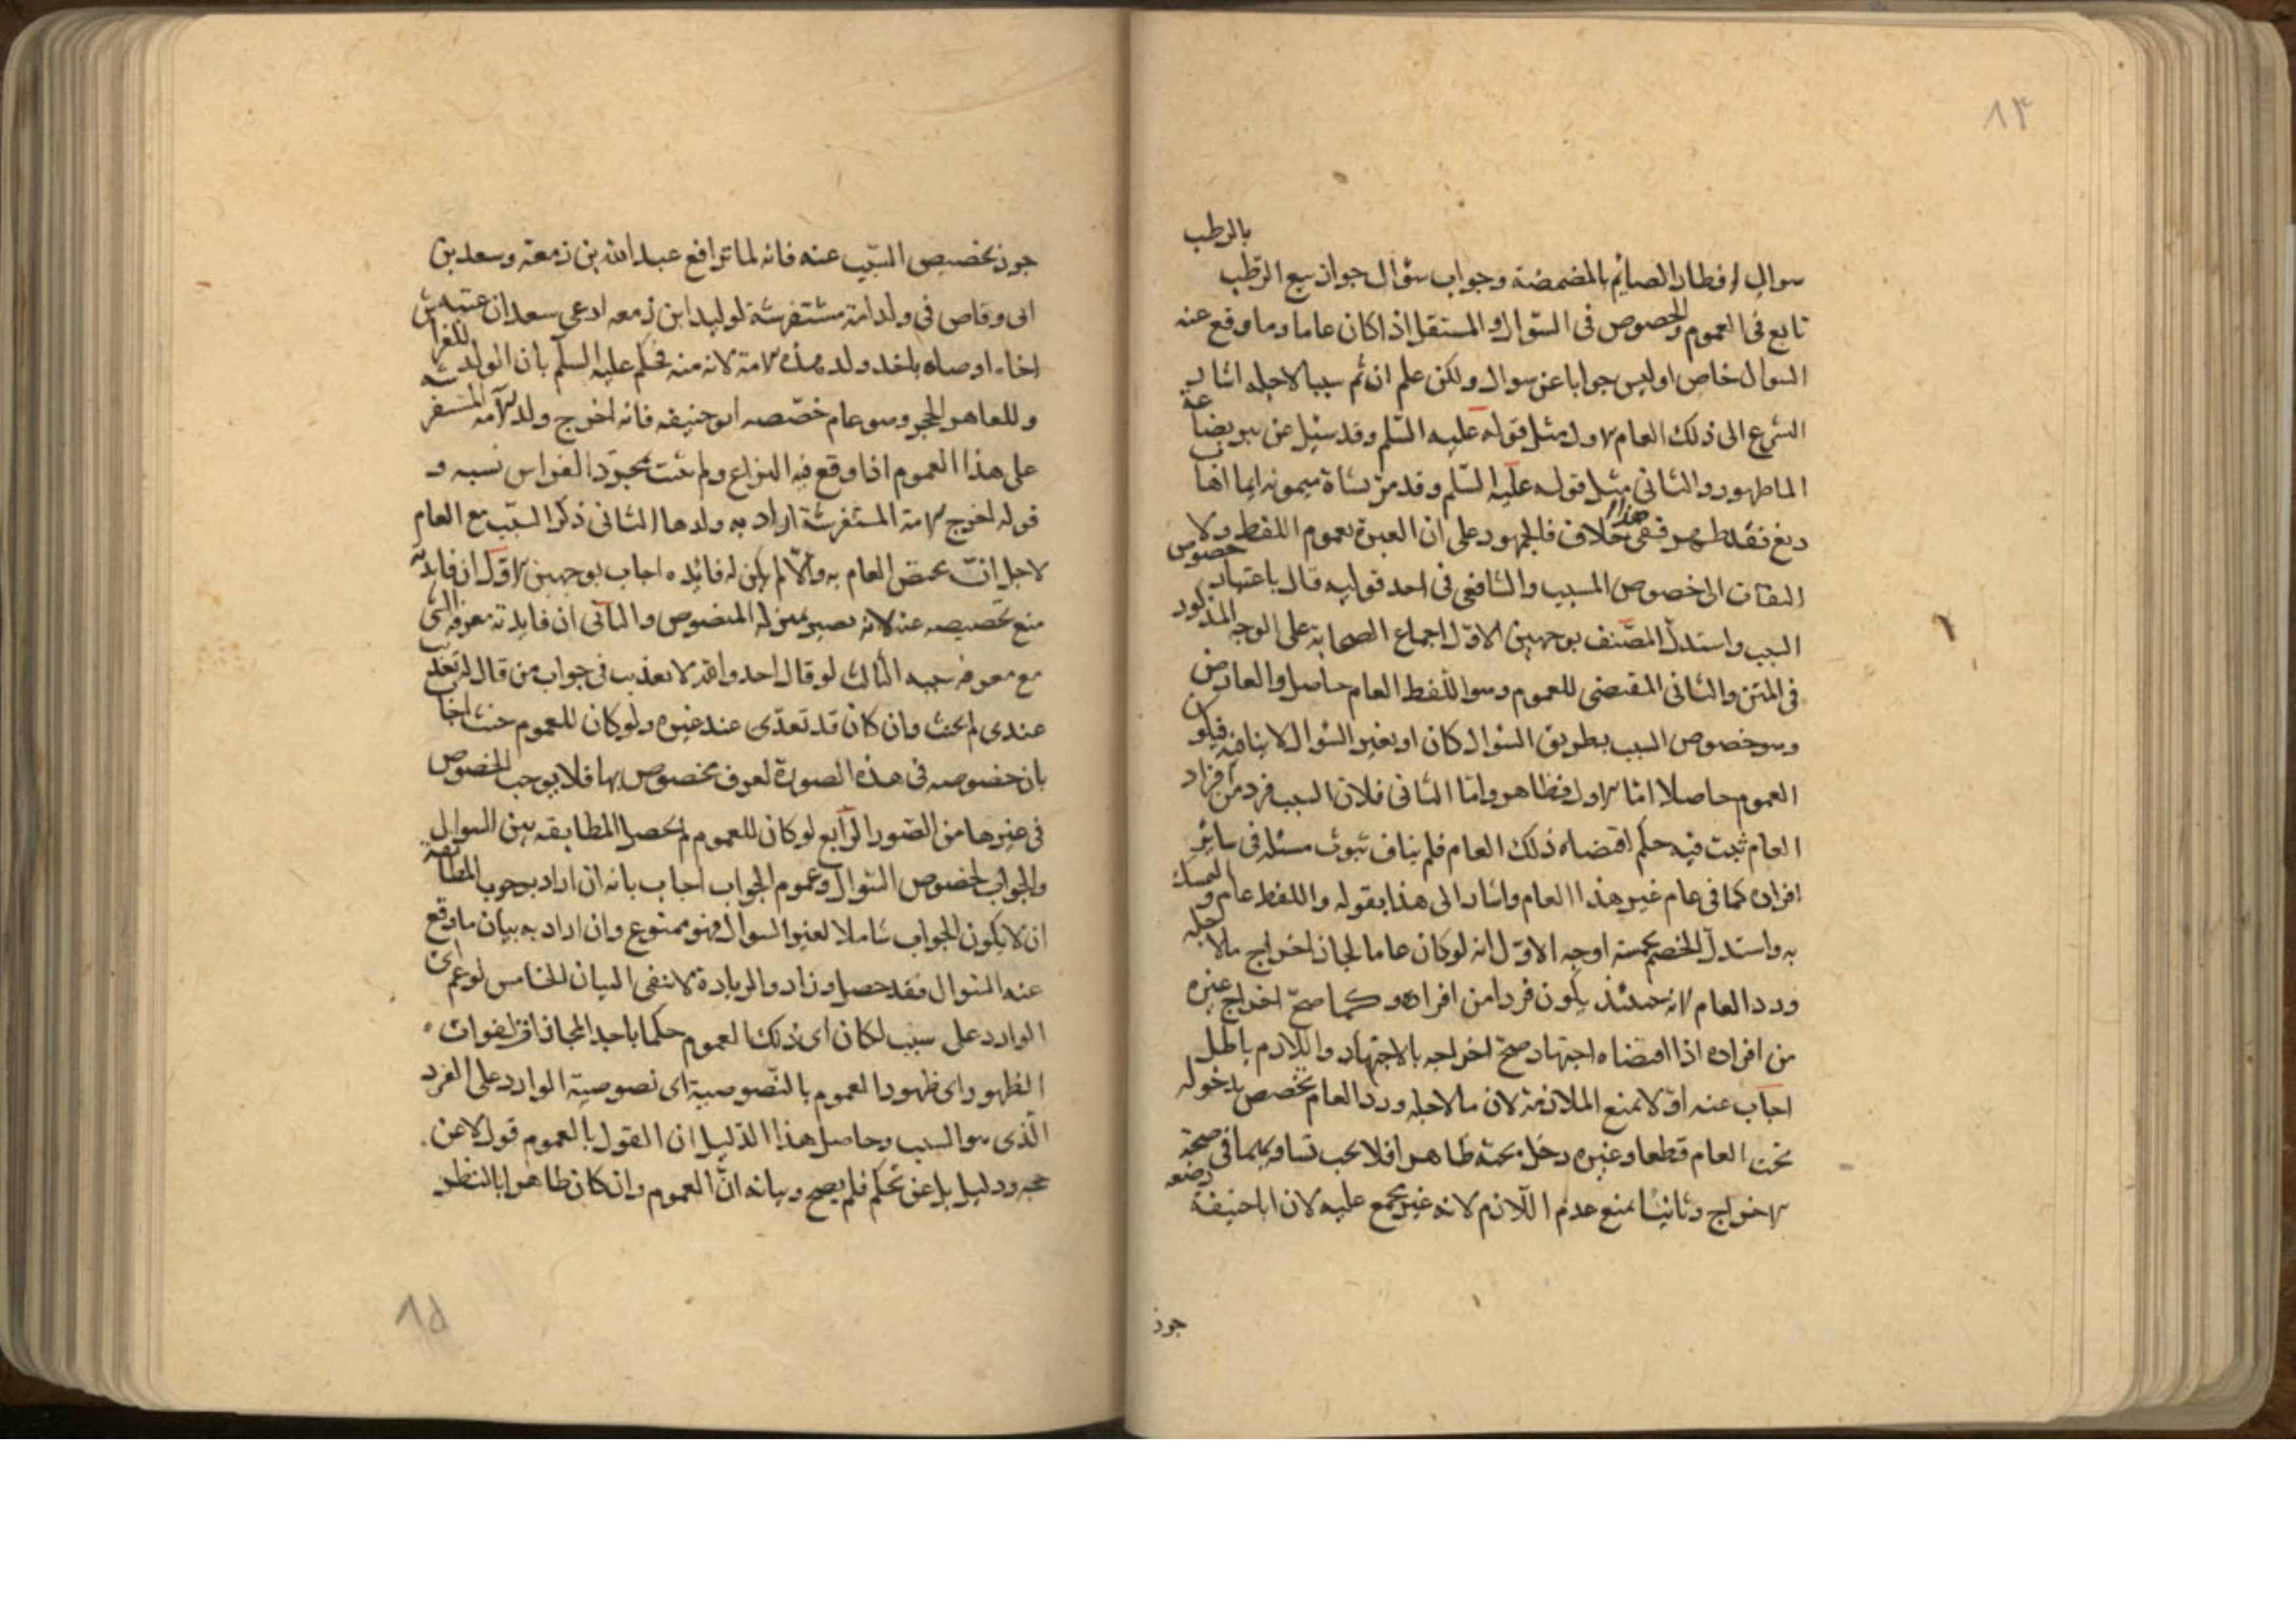 ٨٤
بالرطب
سوال افطار الصايم بالمضمضة وجواب سؤال جواز بيع الرطب
تابع فى العموم والخصوص فى السؤال والمستقل اذا كان عاما وما وقع عنه
السوال خاص او ليس جوابا عن سوال ولكن علم ان ثم سببا لاجله اشار
الشرع الى ذلك العام الاول مثل قوله عليه السلم وقد سئل عن بير بضاعة
الما طهور والثانى مثل قوله عليه السلم وقد مر بشاة ميمونه ايما اهاب
دبغ فقد طهر ففى هذا خلاف فالجمهور على ان العبرة بعموم اللفظ ولا
التفات الى خصوص السبب والشافعى فى احد قوليه قال باعتبار خصوص
السبب واستدل المصنف بوجهين الاول اجماع الصحابة على الوجه المذكور
فى المتن والثانى المقتضى للعموم وهو اللفظ العام حاصل والعارض
وهو خصوص السبب بطريق السؤال كان او بغير السؤال لا ينافيه فيكون
العموم حاصلا اما الاول فظاهر واما الثانى فلان السبب فرد من افراد
العام ثبت فيه حكم اقتضاه ذلك العام فلم يناف ثبوت مسئله فى ساير
افراده كما فى عام غير هذا العام واشار الى هذا بقوله واللفظ عام والتمسك
به واستدل الخصم بخمسة اوجه الاول انه لو كان عاما لجاز اخراج ما لاجله
ورد العام لانه حينئذ يكون فردا من افراده وكما صح اخراج غيره
من افراده اذا اقتضاه اجتهاد صح اخراجه بالاجتهاد واللازم باطل
اجاب عنه اولا بمنع الملازمة لان ما لاجله ورد العام مخصص بدخوله
تحت العام قطعا وغيره دخل تحته ظاهرا فلا يجب تساويهما فى صحة
الاخراج وثانيا بمنع عدم اللازم لانه غير مجمع عليه لان ابا حنيفة
جوز
جوز تخصيص السبب عنه فانه لما ترافع عبد الله بن زمعة وسعد بن
ابى وقاص فى ولد امة مستفرشة لوليد ابن زمعه ادعى سعد ان عتبه
اخاه اوصاه باخد ولد هذه الامة لانه منه فحكم عليه السلم بان الولد للفراش
وللعاهر الحجر وهو عام خصصه ابو حنيفه فانه اخرج ولد الامه المستفرشه
على هذا العموم اذا وقع فيه النزاع ولم يثبت بمجرد الفراش نسبه و
قوله اخرج الامة المستفرشة اراد به ولدها الثانى ذكر السبب مع العام
لاجل انه تخصص العام به والا لم يكن له فائده اجاب بوجهين الاول ان فايدته
منع تخصيصه عنه لانه يصير بمنزله المنصوص والثانى ان فايدته معرفه الشى
مع معرفه سببه الثالث لو قال احد والله لا تغديت فى جواب من قال له تغد
عندى لم يحنث وان كان قد تغدى عند غيره ولو كان للعموم حنث اجاب
بان خصوصه فى هذه الصورة لعرف مخصوص بها فلا يوجب الخصوص
فى غيرها من الصور الرابع لو كان للعموم لم يحصل المطابقه بين السوال
والجواب لخصوص السوال وعموم الجواب اجاب بانه ان اراد بوجوب المطابقة
ان لا يكون الجواب شاملا لغير السوال فهو ممنوع وان اراد به بيان ما وقع
عنه السوال فقد حصل وزاد والزيادة لا تنفى البيان الخامس لو عم اى
الوارد على سبب لكان اى ذلك العموم حكما باحد المجازات لفوات
الظهور اى ظهور العموم بالنصوصية اى نصوصية الوارد على الفرد
الذى هو السبب وحاصل هذا الدليل ان القول بالعموم قول لا عن
حجه ودليل بل عن تحكم فلم يصح وبيانه ان العموم وان كان ظاهرا بالنظر
٨٥